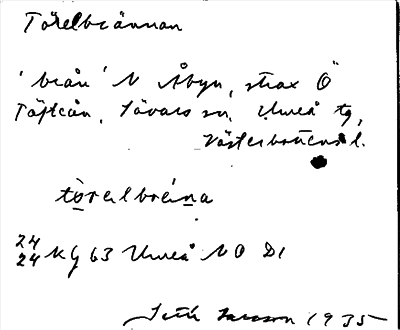 Törelbrännan
'brån' N Åbyn, strax Ö
Täfteån, Sävars sn, Umeå tg,
Västerbottens l.
törelbräna
24
24 Kg 63 Umeå NO D1
Seth Larsson 1935